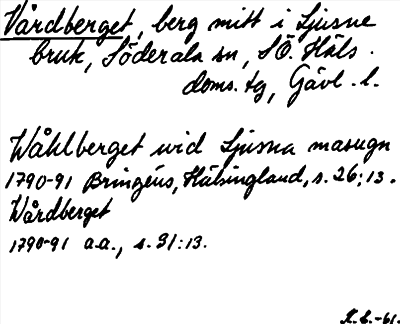 Vårdberget, berg mitt i Ljusne
bruk, Söderala sn, SÖ. Häls.
doms. tg, Gävl. l.
Wåhlberget wid Ljusna masugn
1790-91 Bringéus, Hälsingland, s. 26:13.
Wårdberget
1790-91 a.a., s. 31:13.
K.L.-61.